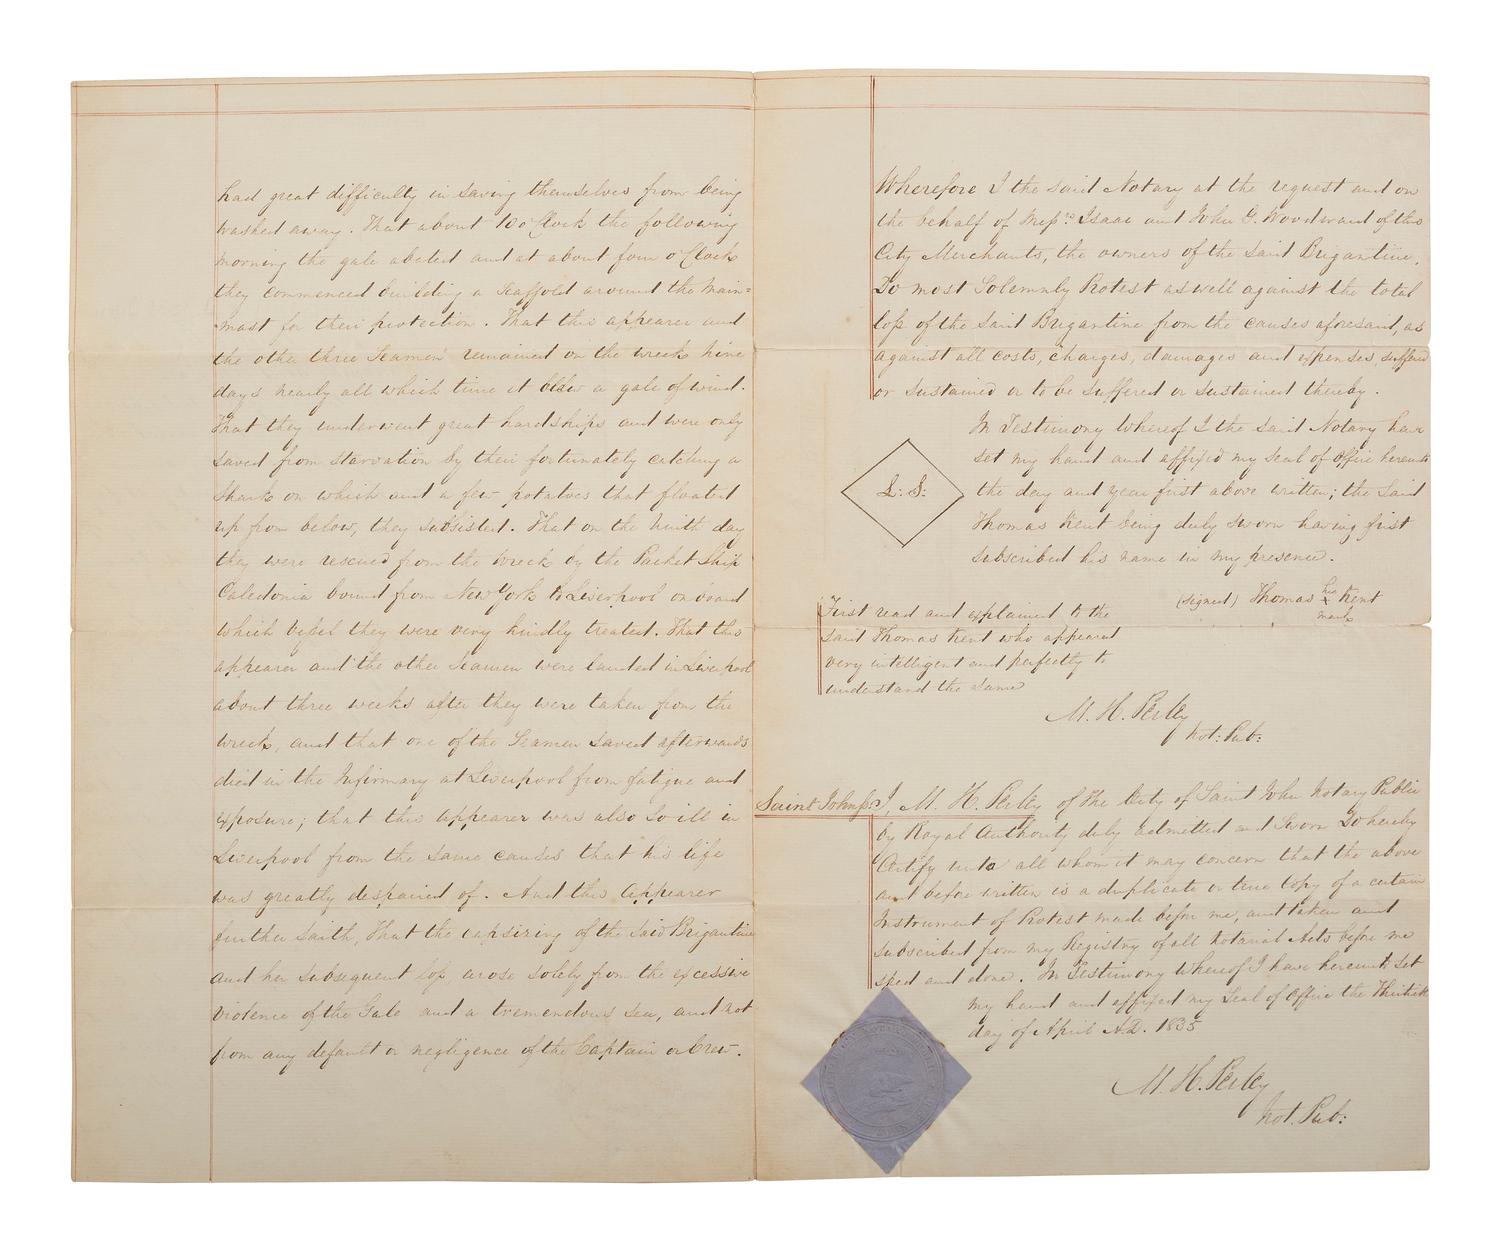 had great difficulty in saving themselves from being
washed away. That about 10 o'Clock the following
morning the gale abated and at about four o'Clock
they commenced building a scaffold around the main=
mast for their protection. That this appearer and
the other three Seamen remained on the wreck nine
days nearly all which time it blew a gale of wind.
That they underwent great hardships and were only
saved from starvation by their fortunately catching a
shark on which and a few potatoes that floated
up from below, they subsisted. That on the Ninth day
they were rescued from the wreck by the Packet Ship
Caledonia bound from New York to Liverpool on board
which vessel they were very kindly treated. That this
appearer and the other Seamen were landed in Liverpool
about three weeks after they were taken from the
wreck, and that one of the Seamen saved afterwards
died in the Infirmary at Liverpool from fatigue and
exposure; that this appearer was also so ill in
Liverpool from the same causes that his life
was greatly despaired of. And this Appearer
further saith, That the capsizing of the said Brigantine
and her subsequent loss arose solely from the excessive
violence of the Gale and a tremendous sea, and not
from any default or negligence of the Captain or Crew.
Wherefore I the said Notary at the request and on
the behalf of Messrs: Isaac and John G. Woodward of this
City Merchants, the owners of the said Brigantine,
Do most Solemnly Protest as well against the total
loss of the said Brigantine from the causes aforesaid, as
against all costs, charges, damages and expenses, suffered
or sustained or to be suffered or sustained thereby.
In Testimony whereof I the said Notary have
set my hand and affixed my seal of office hereunto
L: S:
the day and year first above written; the said
Thomas Kent being duly sworn having first
subscribed his name in my presence.
(signed) Thomas his x mark Kent
First read and explained to the
said Thomas Kent who appeared
very intelligent and perfectly to
understand the same
M. H. Perley
Not: Pub:
Saint John ss: I, M. H. Perley of the City of Saint John Notary Public
by Royal Authority duly admitted and Sworn Do hereby
Certify unto all whom it may concern that the above
and before written is a duplicate or true Copy of a certain
Instrument of Protest made before me, and taken and
subscribed from my Registry of all Notarial Acts before me
sped and done. In Testimony whereof I have hereunto set
my hand and affixed my Seal of Office the Thirtieth
day of April A.D. 1835
M. H. Perley
Not. Pub: